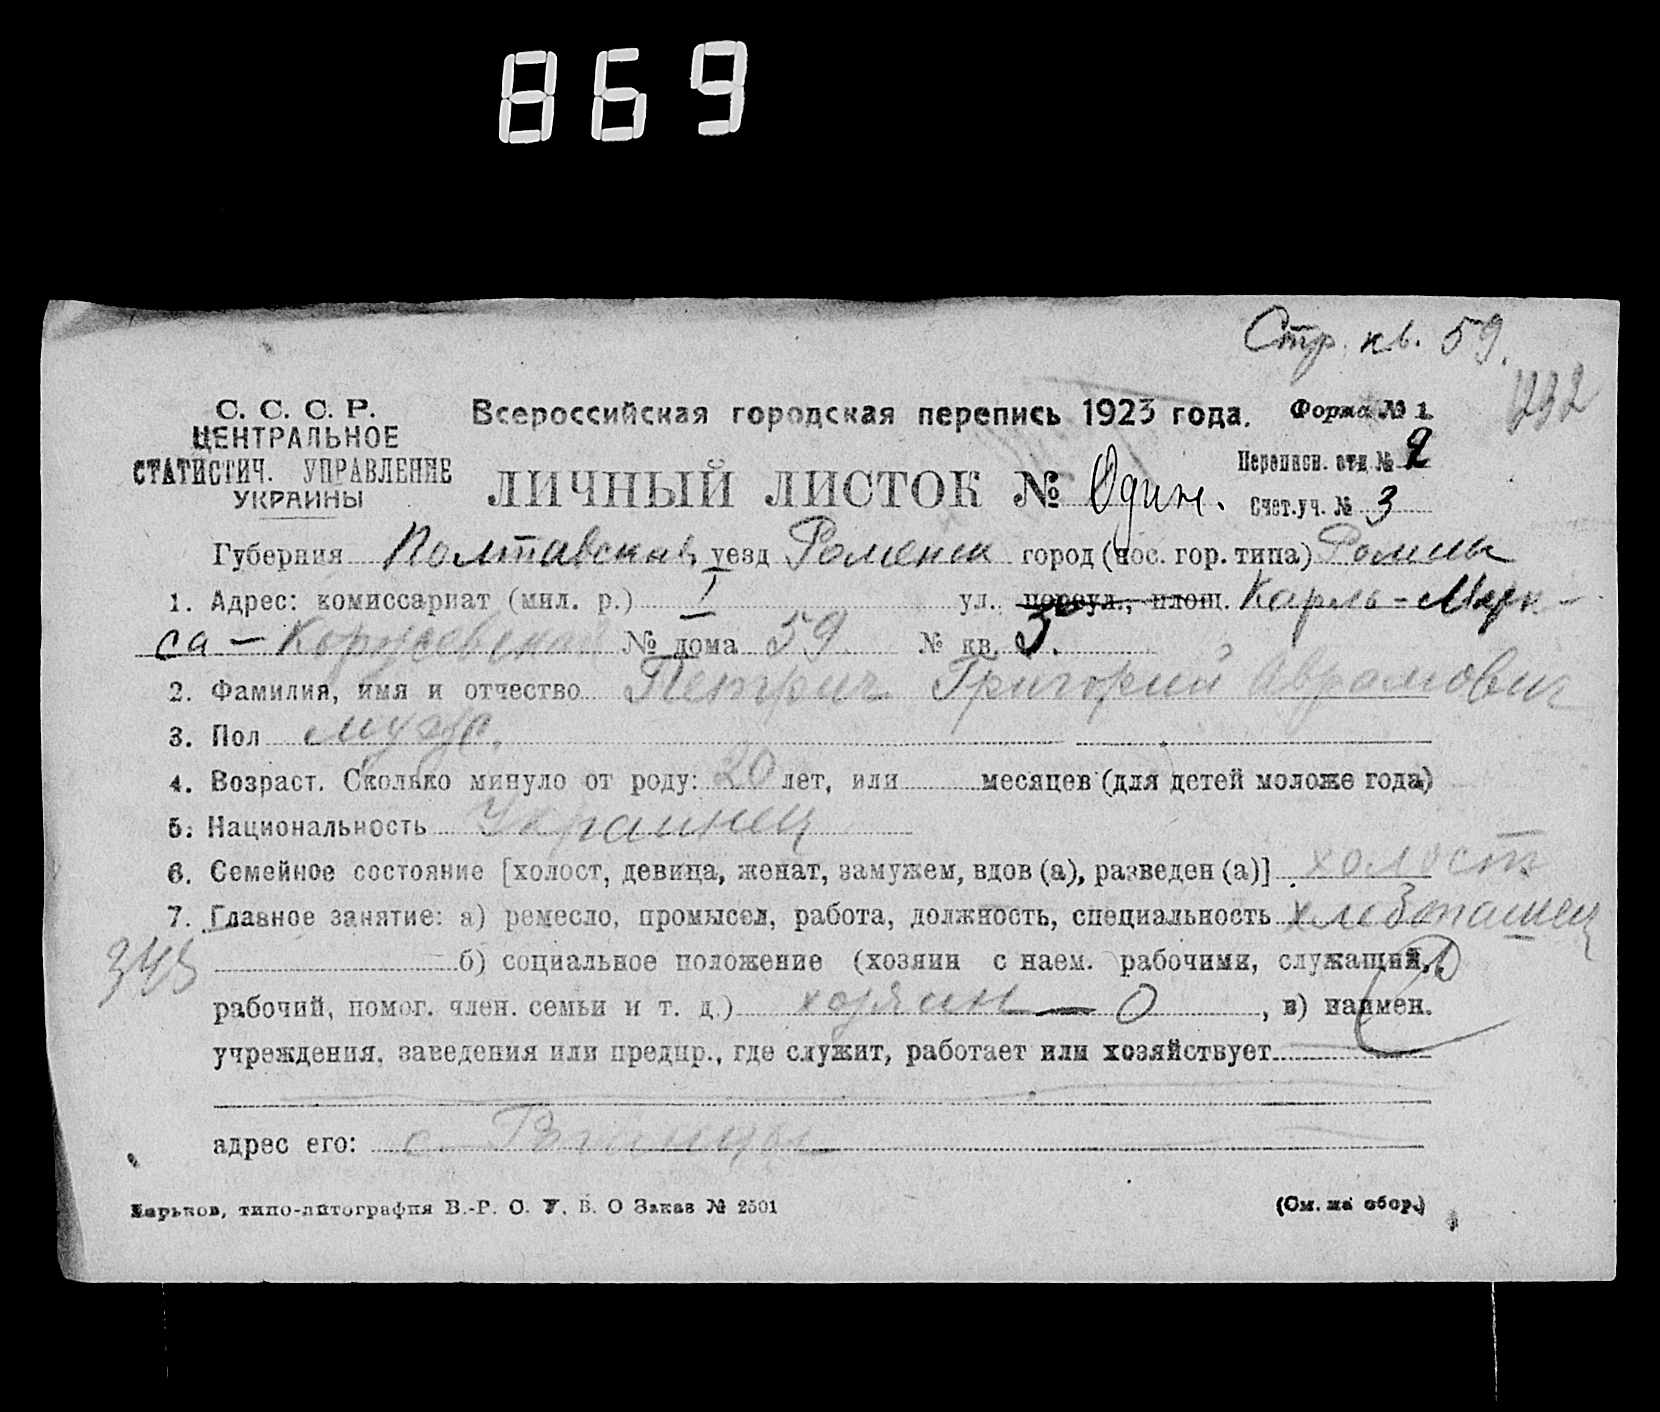 869
Стр. кв. 59.
232
С. С. С. Р.
ЦЕНТРАЛЬНОЕ
СТАТИСТИЧ. УПРАВЛЕНИЕ
УКРАИНЫ
Всероссийская городская перепись 1923 года.
Форма № 1
ЛИЧНЫЙ ЛИСТОК № Один.
Переписн. отд. № 2
Счет.уч. № 3
Губерния Полтавская, уезд Роменск город (пос. гор. типа) Ромны
1. Адрес: комиссариат (мил. р.) I ул., переул., площ. Карль-Марк-
са - № дома 59 № кв. 3.
2. Фамилия, имя и отчество Петрич Григорий Аврамович
3. Пол муж.
4. Возраст. Сколько минуло от роду: 20 лет, или месяцев (для детей моложе года)
5. Национальность Украинец
6. Семейное состояние [холост, девица, женат, замужем, вдов (а), разведен (а)] холост
7. Главное занятие: а) ремесло, промысел, работа, должность, специальность хлебопашец
б) социальное положение (хозяин с наем. рабочими, служащий,
рабочий, помог. член. семьи и т. д.) хозяин — О, в) наимен.
учреждения, заведения или предпр., где служит, работает или хозяйствует
адрес его: с.
Харьков, типо-литография В.-Р. С. У. В. О Заказ № 2501
(См. на обор.)